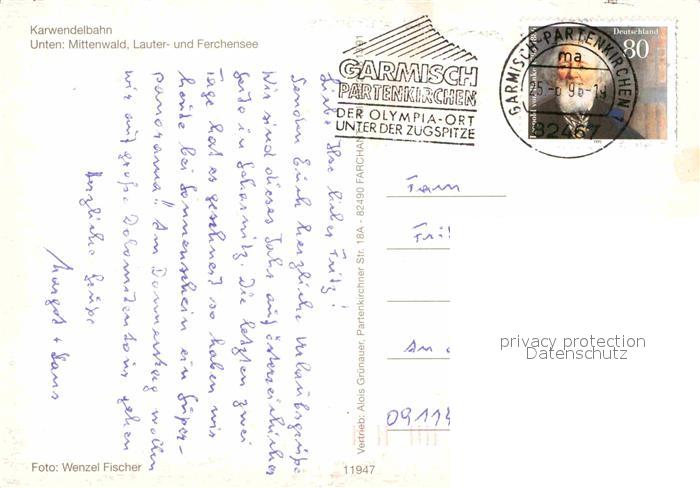 Karwendelbahn
Unten: Mittenwald, Lauter- und Ferchensee
GARMISCH
PARTENKIRCHEN
DER OLYMPIA-ORT
UNTER DER ZUGSPITZE
Deutschland
80
GARMISCH-PARTENKIRCHEN 1
ma
82467
Liebe Ilse lieber Fritz!
Senden Euch herzliche Urlaubsgrüße
Wir sind dieses Jahr auf österreichischer
Seite in Scharnitz. Die letzten zwei
Tage hat es geschneit so haben wir
heute bei Sonnenschein ein Super-
panorama!! Am Donnerstag wollen
wir auf große Dolomitentour gehen
Herzliche Grüße
Margot + Hans
Vertrieb: Alois Grünauer, Partenkirchner Str. 18A - 82490 FARCHANT
Fam
An
privacy protection
Datenschutz
Foto: Wenzel Fischer
11947